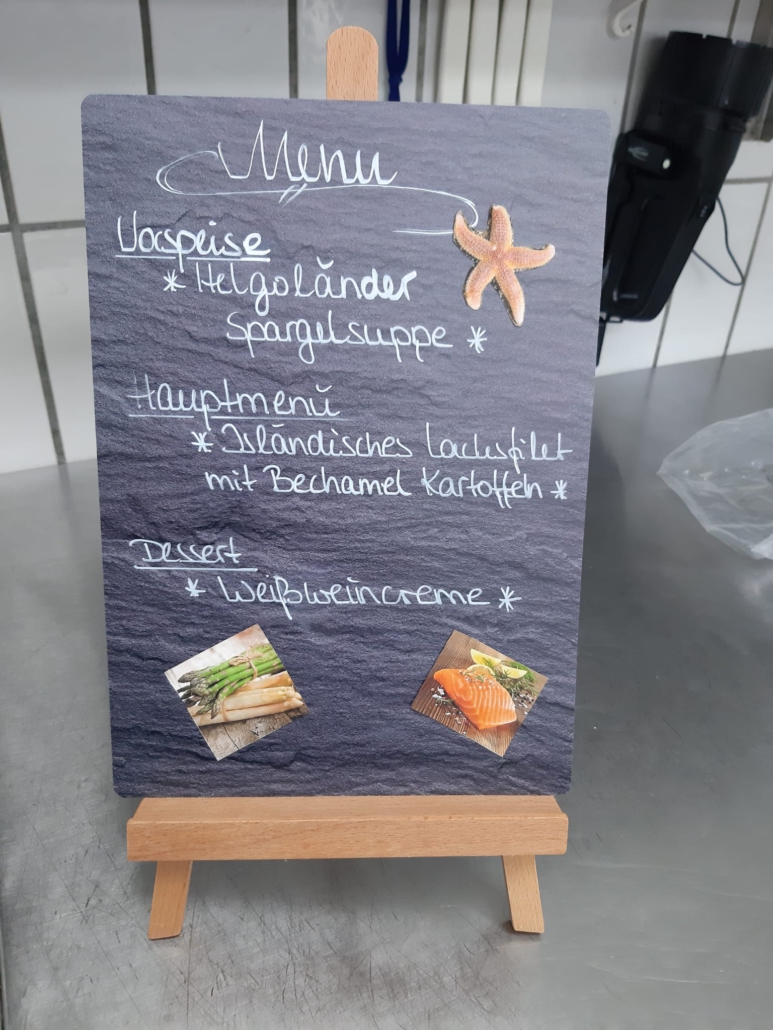 Menu
Vorspeise
* Helgoländer
Spargelsuppe *
Hauptmenü
* Isländisches Lachsfilet
mit Bechamel Kartoffeln *
Dessert
* Weißweincreme *